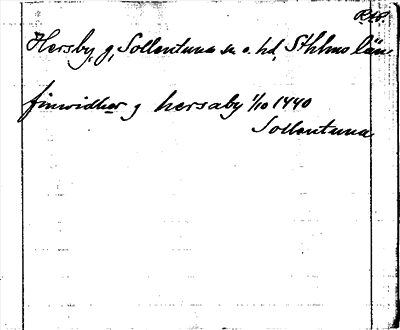 RAP.
Hersby, g, Sollentuna sn o. hd, Sthlms län.
finwidher j hersaby 1/10 1440
Sollentuna